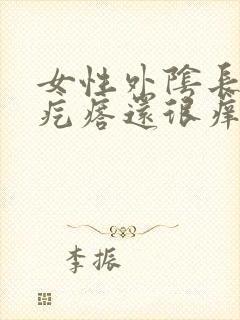 女性外陰長
疙瘩還很痒
李振